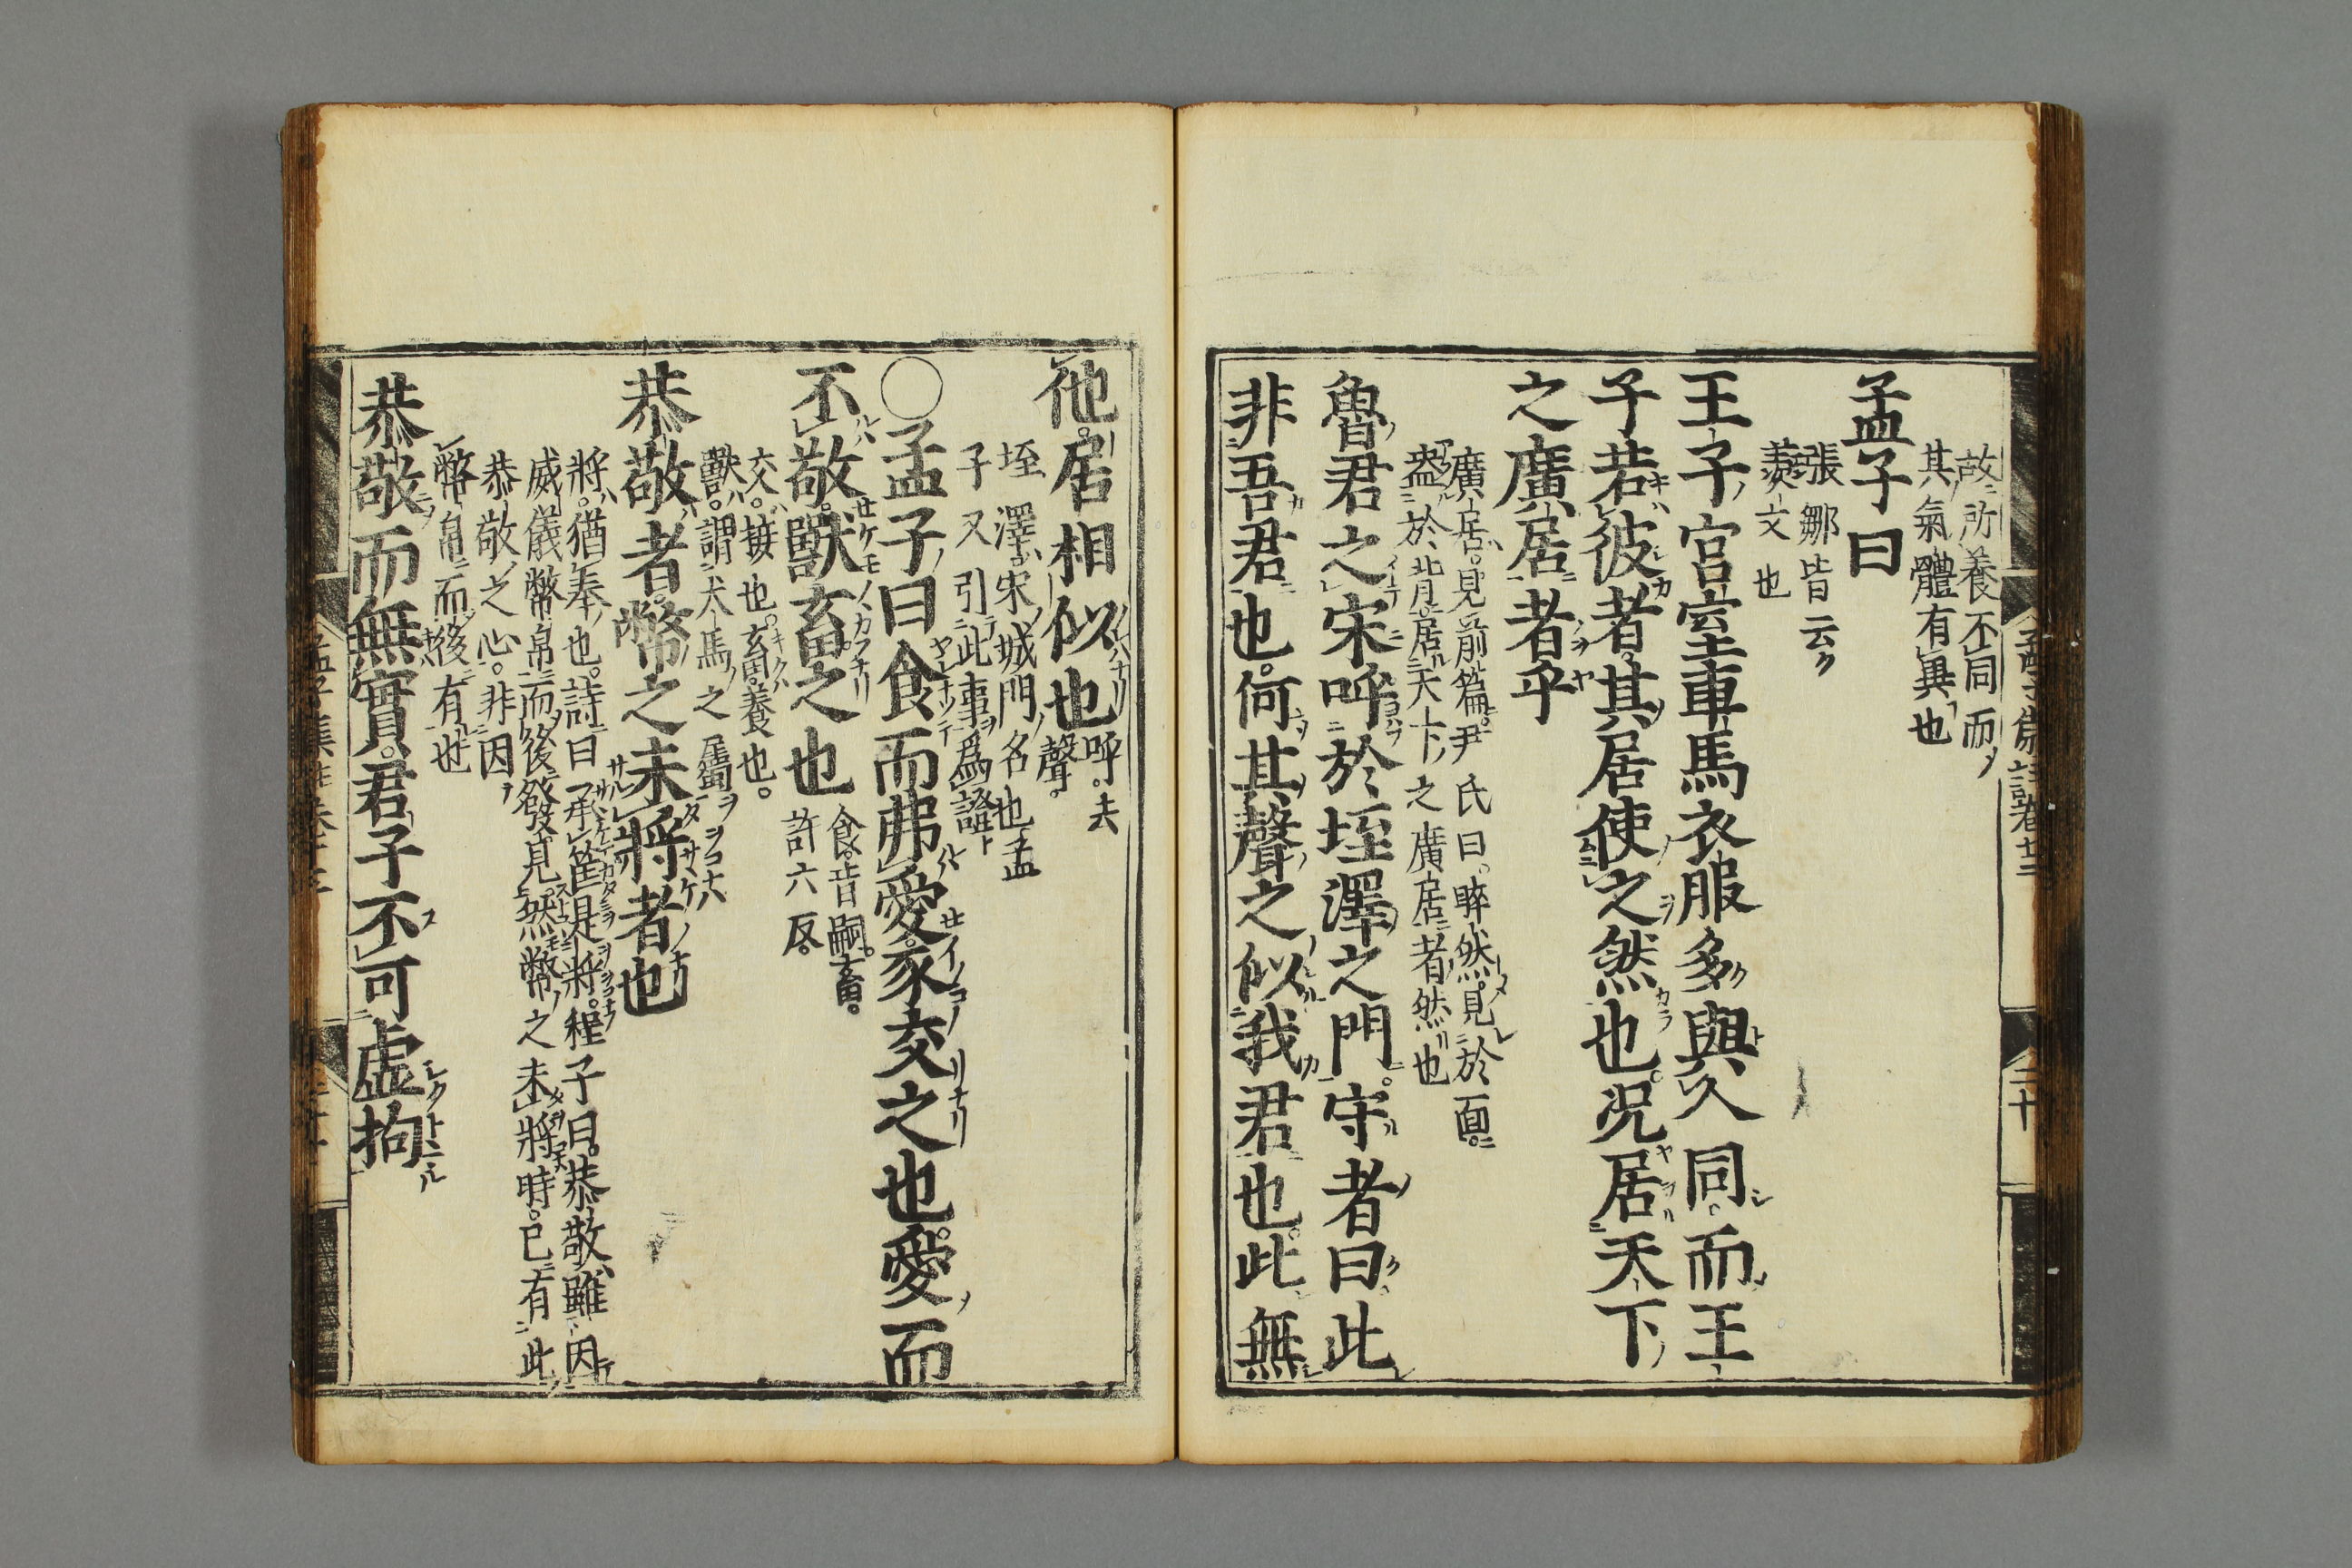 故所養不同而
其氣體有異也
孟子曰
張鄒皆云
羨文也
王子宮室車馬衣服多與人同而王
子若彼者其居使之然也况居天下
之廣居者乎
廣居見前篇尹氏曰睟然見於面
盎於背居天下之廣居者然也
魯君之宋呼於垤澤之門守者曰此
非吾君也何其聲之似我君也此無
他居相似也呼去
聲
垤澤宋城門名也孟
子又引此事爲證
○孟子曰食而弗愛豕交之也愛而
不敬獸畜之也食音嗣畜
許六反
交接也畜養也
獸謂犬馬之屬
恭敬者幣之未將者也
將猶奉也詩曰承筐是將程子曰恭敬雖因
威儀幣帛而後發見然幣之未將時已有此
恭敬之心非因
幣帛而後有也
恭敬而無實君子不可虛拘